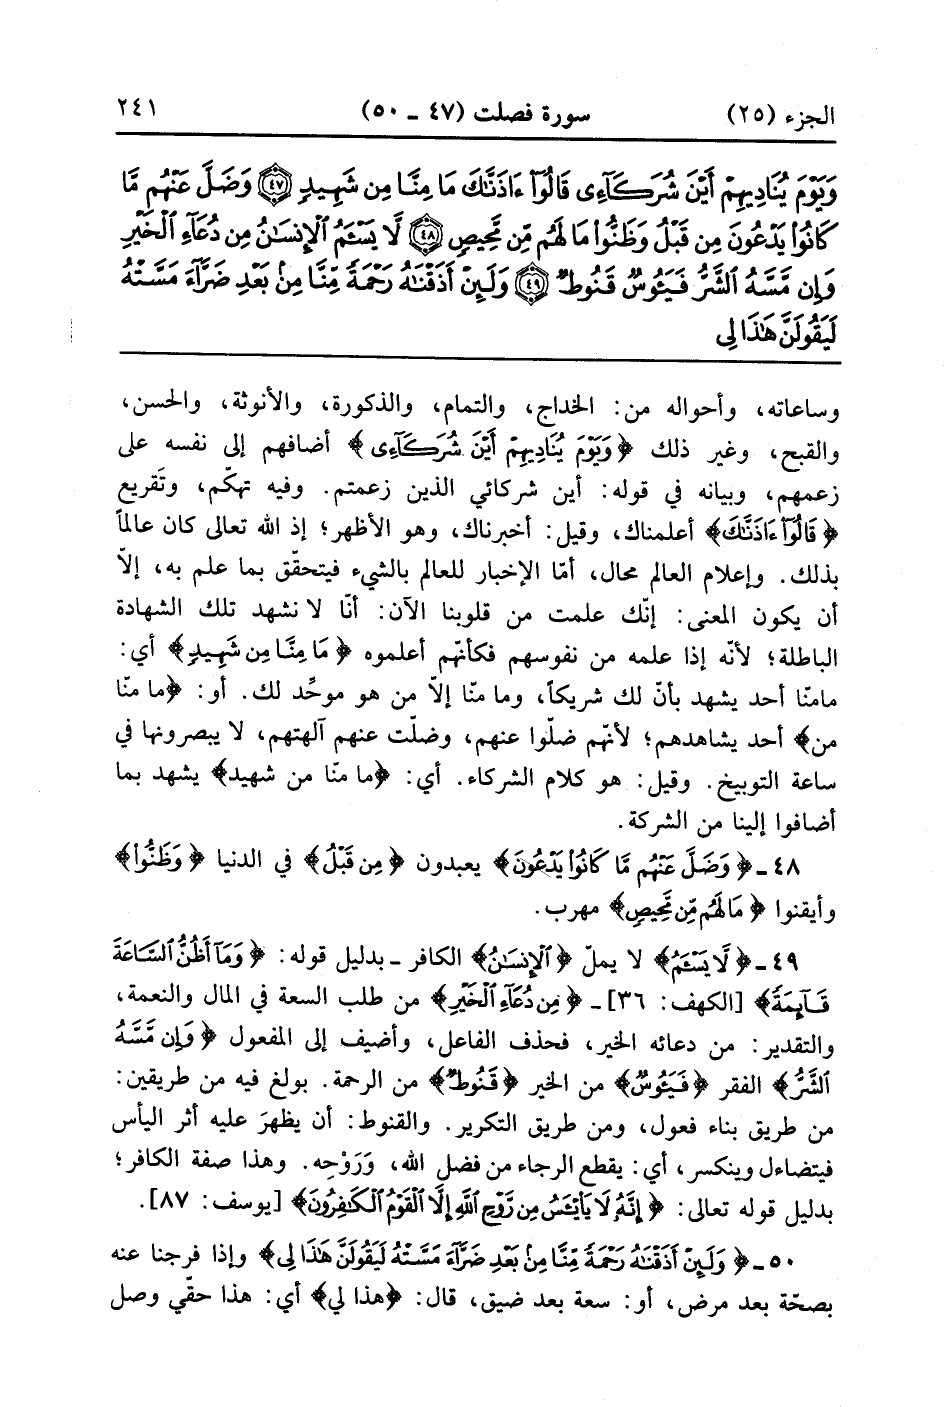 الجزء (٢٥) سورة فصلت (٤٧ ـ ٥٠) ٢٤١
وَيَوْمَ يُنَادِيهِمْ أَيْنَ شُرَكَآءِى قَالُوٓا۟ ءَاذَنَّٰكَ مَا مِنَّا مِن شَهِيدٍ ﴿٤٧﴾ وَضَلَّ عَنْهُم مَّا
كَانُوا۟ يَدْعُونَ مِن قَبْلُ وَظَنُّوا۟ مَا لَهُم مِّن مَّحِيصٍ ﴿٤٨﴾ لَّا يَسْـَٔمُ ٱلْإِنسَٰنُ مِن دُعَآءِ ٱلْخَيْرِ
وَإِن مَّسَّهُ ٱلشَّرُّ فَيَـُٔوسٌ قَنُوطٌ ﴿٤٩﴾ وَلَئِنْ أَذَقْنَٰهُ رَحْمَةً مِّنَّا مِنۢ بَعْدِ ضَرَّآءَ مَسَّتْهُ
لَيَقُولَنَّ هَٰذَا لِى
وساعاته، وأحواله من: الخداج، والتمام، والذكورة، والأنوثة، والحسن،
والقبح، وغير ذلك ﴿وَيَوْمَ يُنَادِيهِمْ أَيْنَ شُرَكَآءِى﴾ أضافهم إلى نفسه على
زعمهم، وبيانه في قوله: أين شركائي الذين زعمتم. وفيه تهكّم، وتَقريع
﴿قَالُوٓا۟ ءَاذَنَّٰكَ﴾ أعلمناك، وقيل: أخبرناك، وهو الأظهر؛ إذ الله تعالى كان عالماً
بذلك. وإعلام العالم محال، أمّا الإخبار للعالم بالشيء فيتحقّق بما علم به، إلاّ
أن يكون المعنى: إنّك علمت من قلوبنا الآن: أنّا لا نشهد تلك الشهادة
الباطلة؛ لأنّه إذا علمه من نفوسهم فكأنّهم أعلموه ﴿مَا مِنَّا مِن شَهِيدٍ﴾ أي:
مامنّا أحد يشهد بأنّ لك شريكاً، وما منّا إلاّ من هو موحِّد لك. أو: ﴿ما منّا
من﴾ أحد يشاهدهم؛ لأنّهم ضلّوا عنهم، وضلّت عنهم آلهتهم، لا يبصرونها في
ساعة التوبيخ. وقيل: هو كلام الشركاء. أي: ﴿ما منّا من شهيد﴾ يشهد بما
أضافوا إلينا من الشركة.
٤٨ ـ ﴿وَضَلَّ عَنْهُم مَّا كَانُوا۟ يَدْعُونَ﴾ يعبدون ﴿مِن قَبْلُ﴾ في الدنيا ﴿وَظَنُّوا۟﴾
وأيقنوا ﴿مَا لَهُم مِّن مَّحِيصٍ﴾ مهرب.
٤٩ ـ ﴿لَّا يَسْـَٔمُ﴾ لا يملّ ﴿ٱلْإِنسَٰنُ﴾ الكافر ـ بدليل قوله: ﴿وَمَآ أَظُنُّ ٱلسَّاعَةَ
قَآئِمَةً﴾ [الكهف: ٣٦] ـ ﴿مِن دُعَآءِ ٱلْخَيْرِ﴾ من طلب السعة في المال والنعمة،
والتقدير: من دعائه الخير، فحذف الفاعل، وأضيف إلى المفعول ﴿وَإِن مَّسَّهُ
ٱلشَّرُّ﴾ الفقر ﴿فَيَـُٔوسٌ﴾ من الخير ﴿قَنُوطٌ﴾ من الرحمة. بولغ فيه من طريقين:
من طريق بناء فعول، ومن طريق التكرير. والقنوط: أن يظهرَ عليه أثر اليأس
فيتضاءل وينكسر، أي: يقطع الرجاء من فضل الله، وَرَوْحِه. وهذا صفة الكافر؛
بدليل قوله تعالى: ﴿إِنَّهُۥ لَا يَا۟يْـَٔسُ مِن رَّوْحِ ٱللَّهِ إِلَّا ٱلْقَوْمُ ٱلْكَٰفِرُونَ﴾ [يوسف: ٨٧].
٥٠ ـ ﴿وَلَئِنْ أَذَقْنَٰهُ رَحْمَةً مِّنَّا مِنۢ بَعْدِ ضَرَّآءَ مَسَّتْهُ لَيَقُولَنَّ هَٰذَا لِى﴾ وإذا فرجنا عنه
بصحّة بعد مرض، أو: سعة بعد ضيق، قال: ﴿هذا لي﴾ أي: هذا حقّي وصل